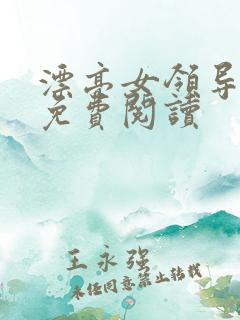 漂亮女領导
免費閱讀
王永强
未经同意禁止转载